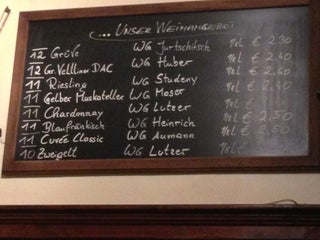 ... Unser Weinangebot
12 Grüve WG Jurtschitsch 1/8l € 2.30
12 Gr. Veltliner DAC WG Huber 1/8l € 2.40
11 Riesling WG Studeny 1/8l € 2.40
11 Gelber Muskateller WG Moser 1/8l €
11 Chardonnay WG Lutzer 1/8l €
11 Blaufränkisch WG Heinrich 1/8l € 2.50
11 Cuvée Classic WG Aumann 1/8l € 2.50
10 Zweigelt WG Lutzer 1/8l €